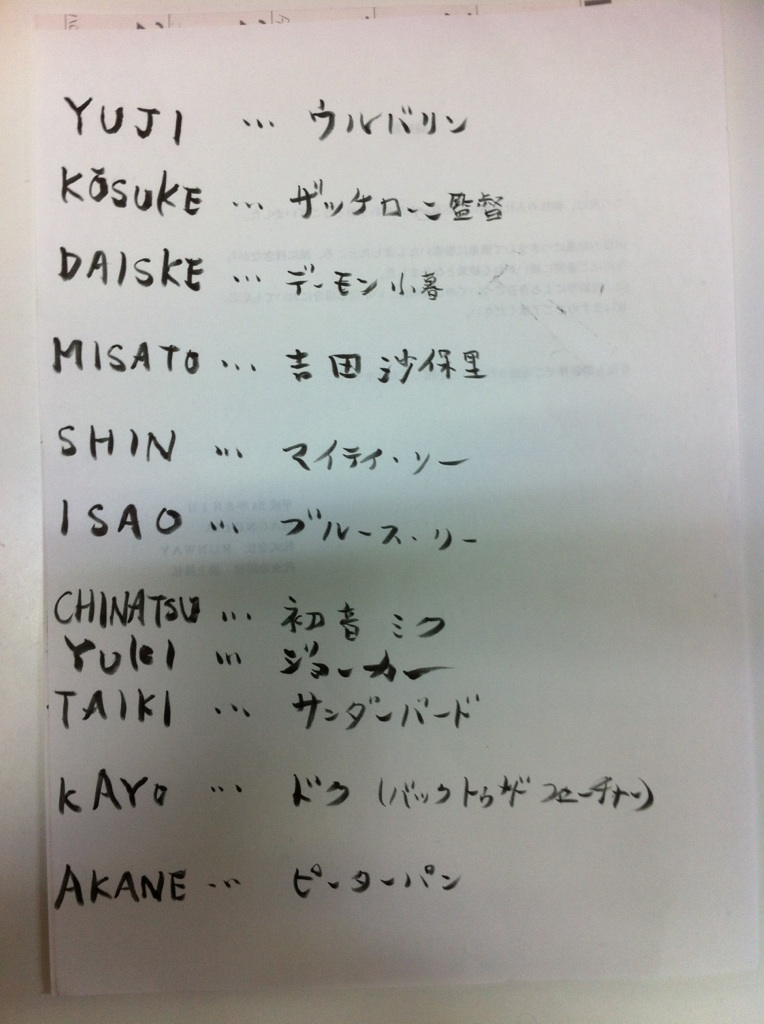 YUJI … ウルバリン
KŌSUKE … ザッケローニ監督
DAISKE … デーモン小暮
MISATO … 吉田沙保里
SHIN … マイティ・ソー
ISAO … ブルース・リー
CHINATSU … 初音ミク
YUKI … ジョーカー
TAIKI … サンダーバード
KAYO … ドク(バックトゥザフューチャー)
AKANE … ピーターパン